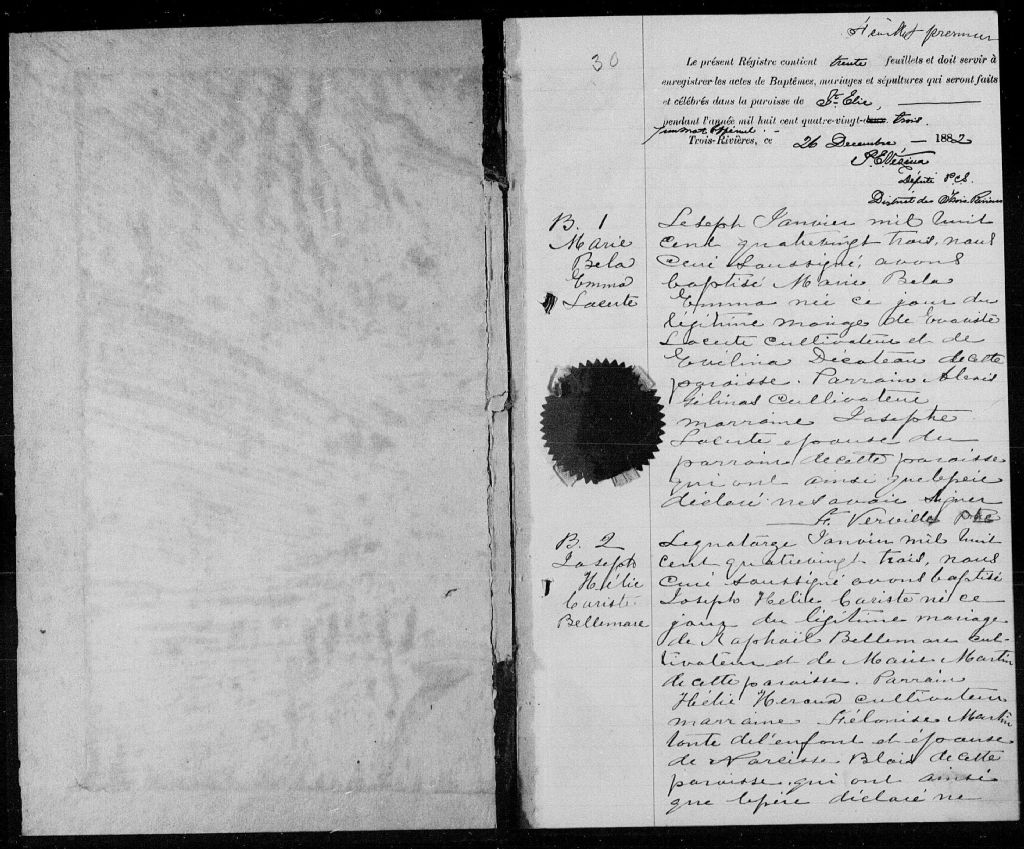 feuillet premier
30
Le présent Régistre contient trente feuillets et doit servir à
enregistrer les actes de Baptêmes, mariages et sépultures qui seront faits
et célébrés dans la paroisse de St. Elie,
pendant l'année mil huit cent quatre-vingt-deux trois.
Trois-Rivières, ce 26 Decembre 1882
Député P.C.S.
District des Trois Rivieres
B. 1
Marie
Bela
Emma
Lacerte
Le sept Janvier mil huit
cent quatrevingt trois, nous
Curé soussigné, avons
baptisé Marie Bela
Emma née ce jour du
légitime mariage de Evariste
Lacerte cultivateur et de
Evelina Décoteau de cette
paroisse. Parrain Alexis
Gélinas cultivateur
marraine Josephe
Lacerte epouse du
parrain de cette paroisse
qui ont ainsi que le père
déclaré ne savoir signer
F. Verville ptre
B. 2
Joseph
Hélie
Cariste
Bellemare
Le quatorze Janvier mil huit
cent quatrevingt trois, nous
Curé soussigné avons baptisé
Joseph Helie Cariste né ce
jour du légitime mariage
de Raphaël Bellemare cul-
tivateur et de Marie Martin
de cette paroisse. Parrain
Hélie Heroux cultivateur
marraine Hélonise Martin
tante de l'enfant et épouse
de Narcisse Blais de cette
paroisse qui ont ainsi
que le père déclaré ne